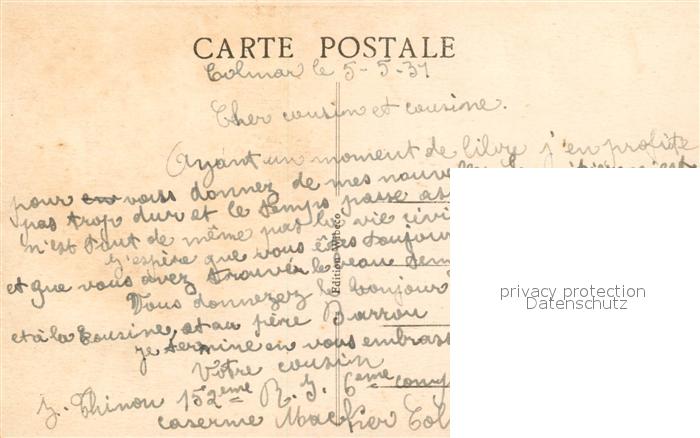 CARTE POSTALE
Colmar le 5-5-31
Cher cousin et cousine.
Ayant un moment de libre j'en profite
pour vous donnez de mes nouve
pas trop dur et le temps passe as
n'est tout de même pas la vie civi
J'espère que vous êtes toujour
et que vous avez trouver le veau dem
Vous donnerez le bonjour
et à la cousine, et au père Barrou
je termine en vous embrass
Votre cousin
J. Thinou 152eme R. I. 6eme comp
caserne Macker Col
Edition
privacy protection
Datenschutz